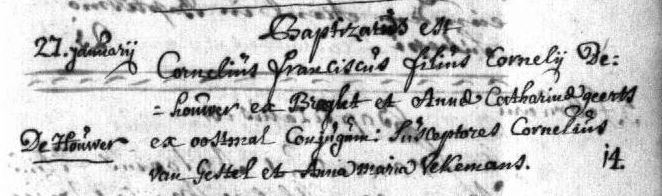 Baptizatus est
27. januarij Cornelius franciscus filius Cornelij De:
= houwer ex Breght et Anna Catharina geerts
De Houwer ex oostmal Conjugum: Susceptores Cornelius
van Gestel et Anna maria Vekemans. 14.